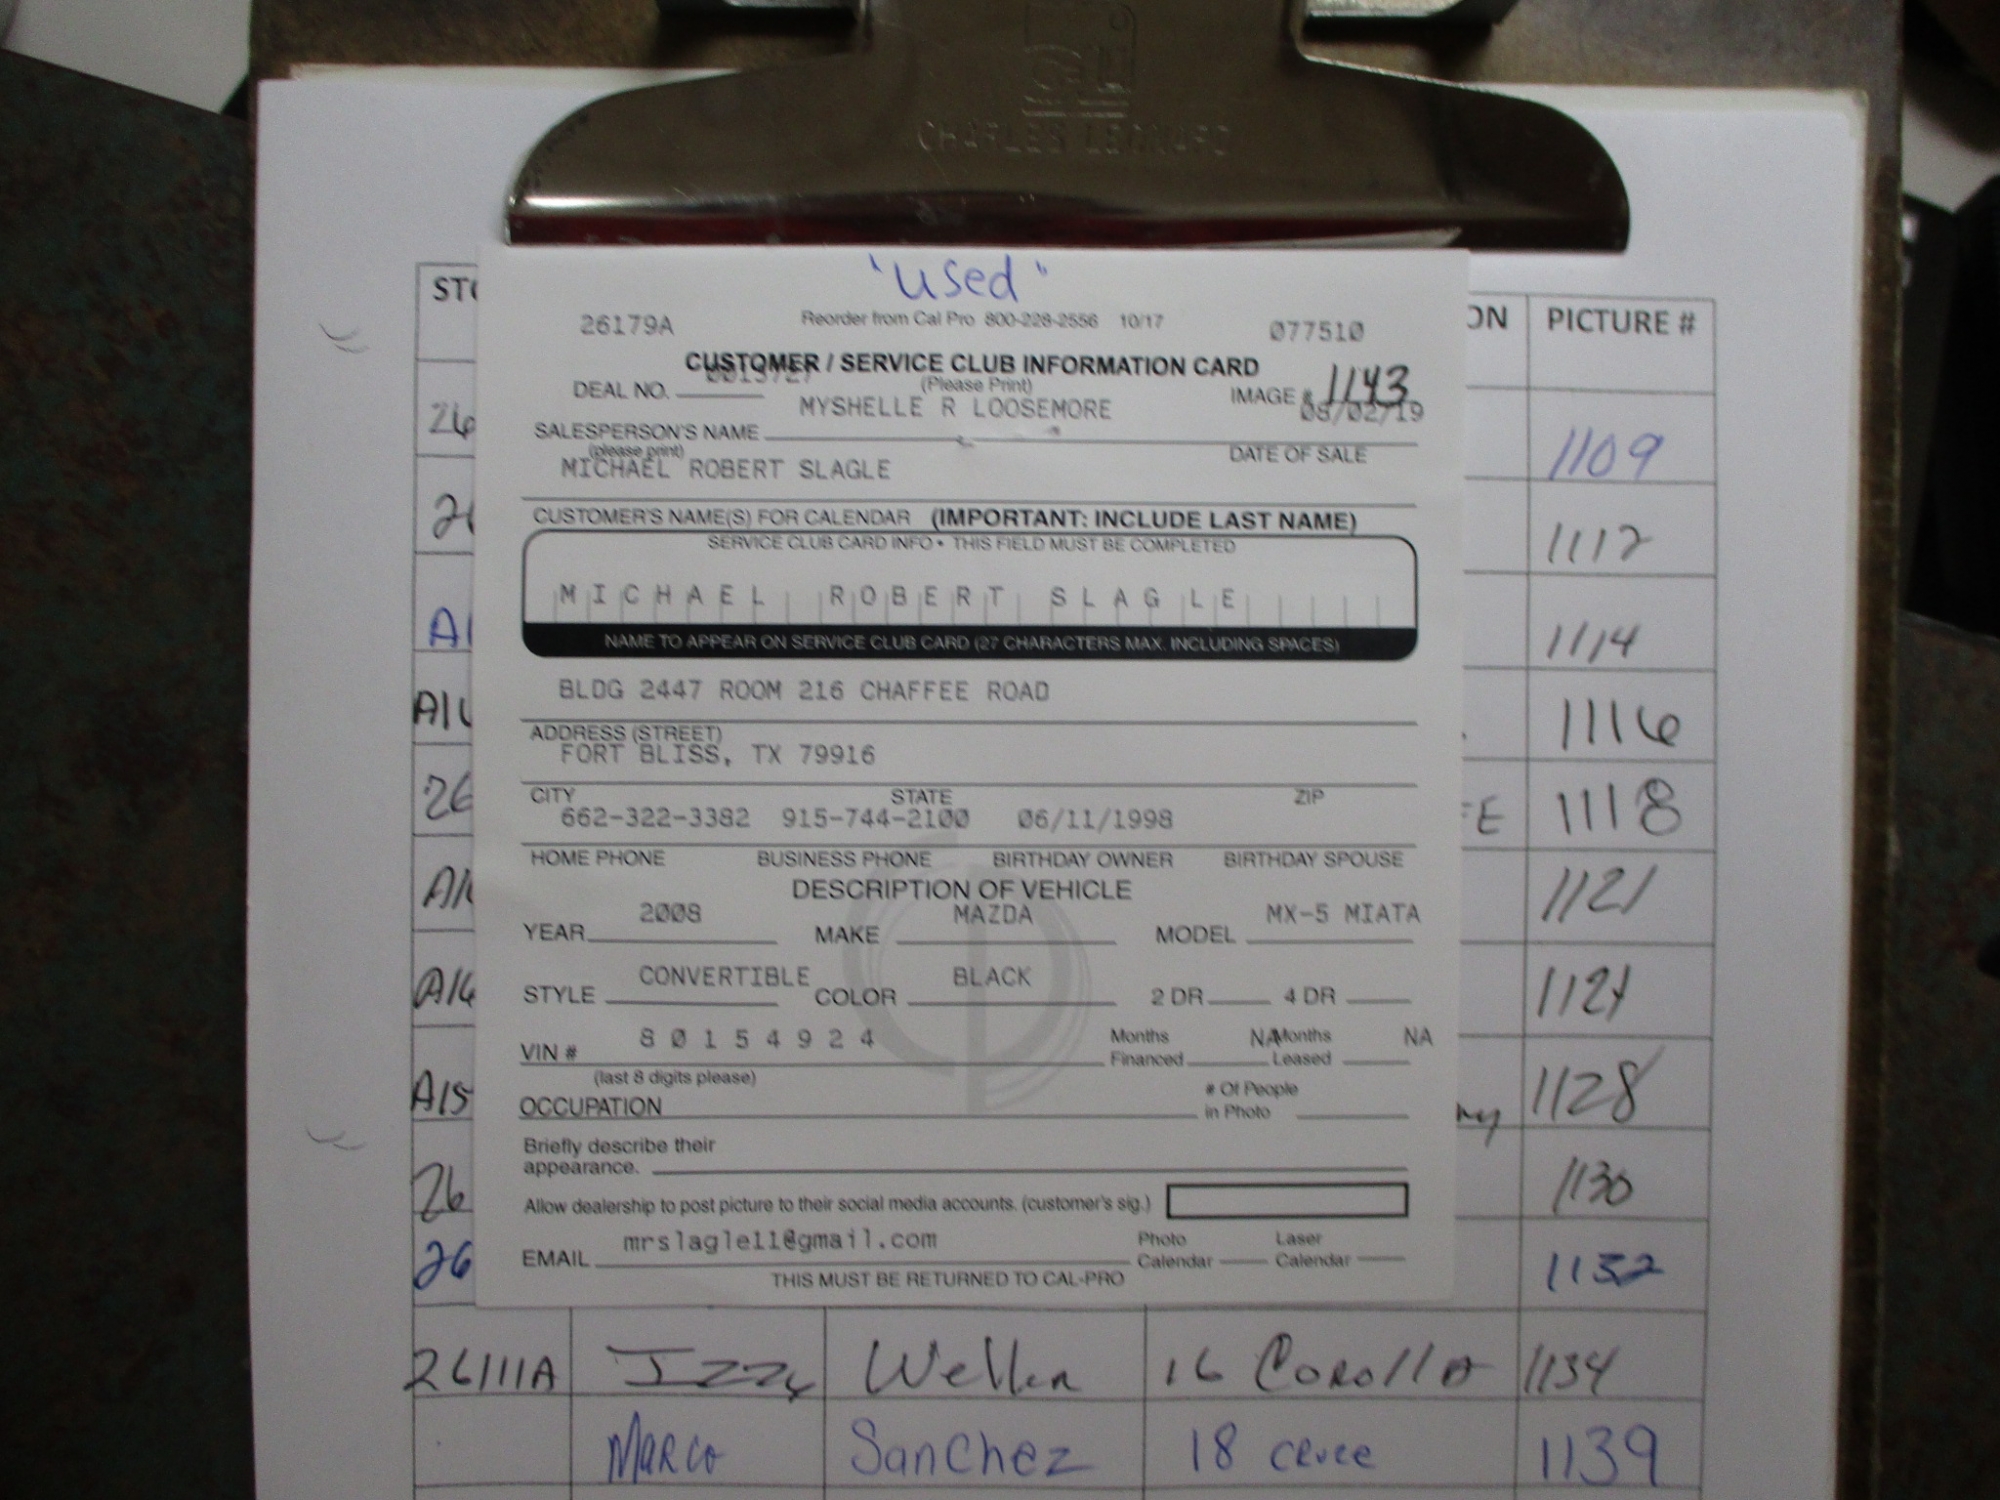 CHARLES LEONARD
"Used"
26179A Reorder from Cal Pro 800-228-2556 10/17 077510
CUSTOMER / SERVICE CLUB INFORMATION CARD
(Please Print)
DEAL NO. IMAGE # 1143
MYSHELLE R LOOSEMORE 08/02/19
SALESPERSON'S NAME DATE OF SALE
(please print)
MICHAEL ROBERT SLAGLE
CUSTOMER'S NAME(S) FOR CALENDAR (IMPORTANT: INCLUDE LAST NAME)
SERVICE CLUB CARD INFO • THIS FIELD MUST BE COMPLETED
MICHAEL ROBERT SLAGLE
NAME TO APPEAR ON SERVICE CLUB CARD (27 CHARACTERS MAX. INCLUDING SPACES)
BLDG 2447 ROOM 216 CHAFFEE ROAD
ADDRESS (STREET)
FORT BLISS, TX 79916
CITY STATE ZIP
662-322-3382 915-744-2100 06/11/1998
HOME PHONE BUSINESS PHONE BIRTHDAY OWNER BIRTHDAY SPOUSE
DESCRIPTION OF VEHICLE
YEAR 2008 MAKE MAZDA MODEL MX-5 MIATA
STYLE CONVERTIBLE COLOR BLACK 2 DR 4 DR
VIN # 80154924 Months Financed NA Months Leased NA
(last 8 digits please)
OCCUPATION # Of People in Photo
Briefly describe their
appearance.
Allow dealership to post picture to their social media accounts. (customer's sig.)
EMAIL mrslagle11@gmail.com Photo Calendar Laser Calendar
THIS MUST BE RETURNED TO CAL-PRO
STO ON PICTURE #
26 1109
26 1112
A1 1114
A16 1116
26 FE 1118
A16 1121
A16
A15 ny 1128
26 1130
26 1132
26111A Izzy Weller 16 Corolla 1134
Marco Sanchez 18 Cruce 1139